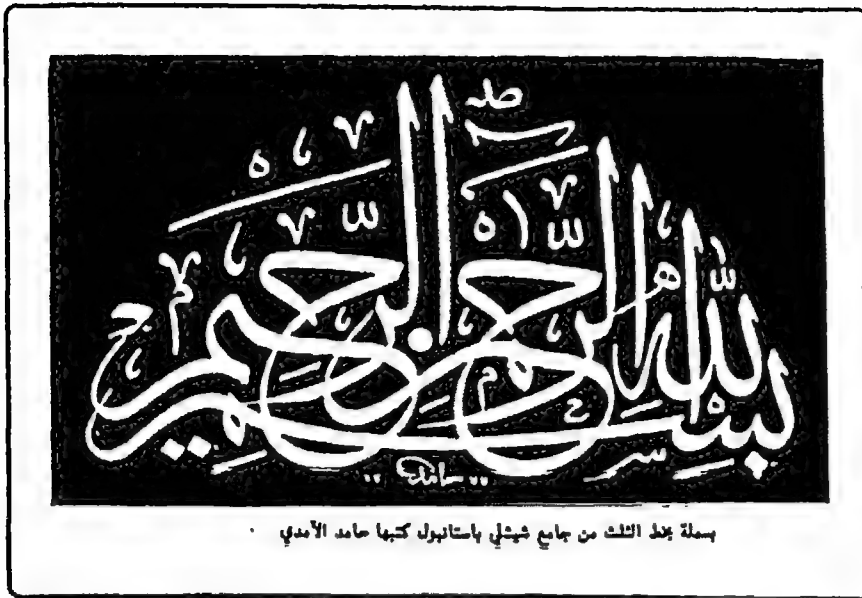 بسم الله الرحمن الرحيم
حامد
بسملة بخط الثلث من جامع شيشلي باستانبول كتبها حامد الآمدي .